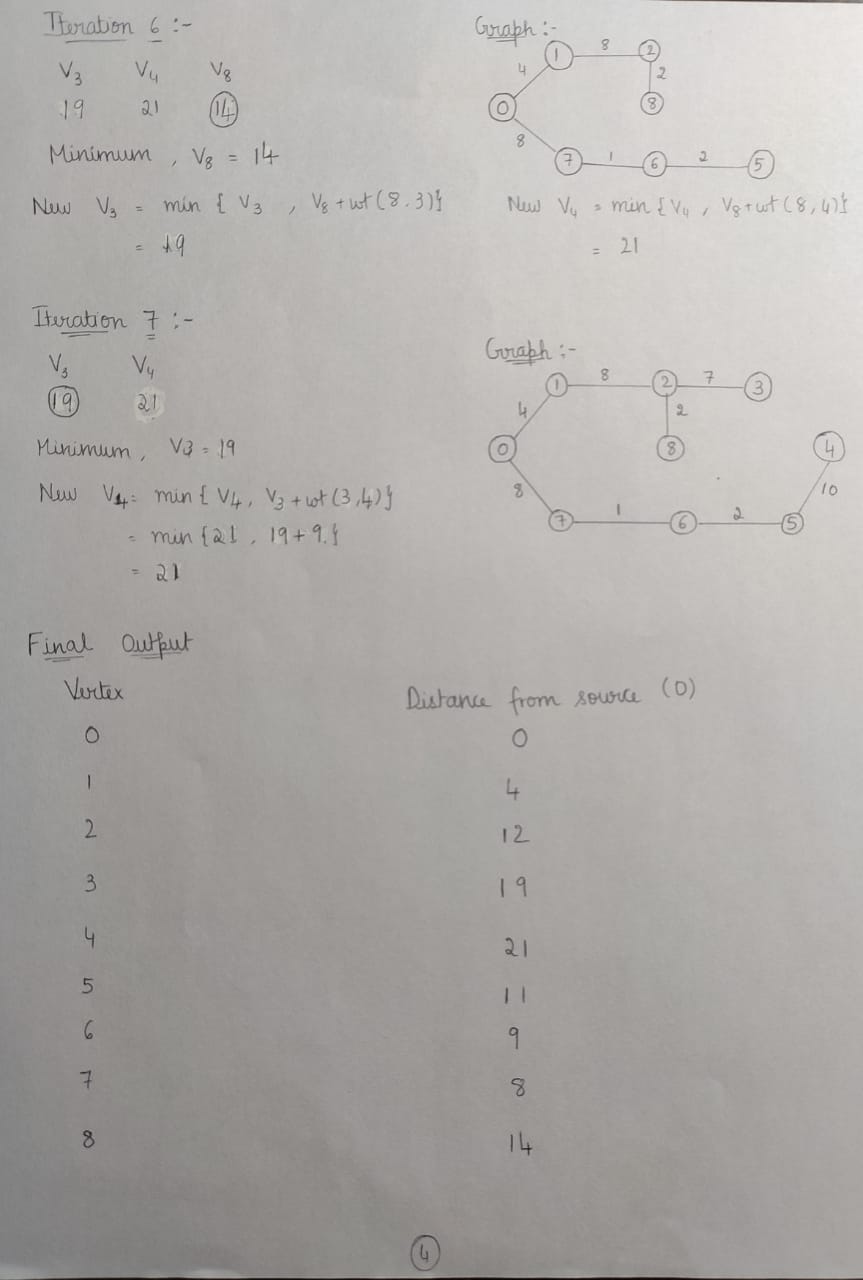 Iteration 6 :-
V3 V4 V8
19 21 14
Minimum , V8 = 14
Graph :-
1 8 2
4 2
0 8
8
7 1 6 2 5
New V3 = min { V3 , V8 + wt (8.3)}
= 19
New V4 = min { V4 , V8 + wt (8,4)}
= 21
Iteration 7 :-
V3 V4
19 21
Minimum, V3 = 19
New V4 = min { V4, V3 + wt (3,4)}
= min {21 , 19+9.}
= 21
Graph :-
1 8 2 7 3
4 2
0 8 4
8 10
7 1 6 2 5
Final Output
Vertex Distance from source (0)
0 0
1 4
2 12
3 19
4 21
5 11
6 9
7 8
8 14
4